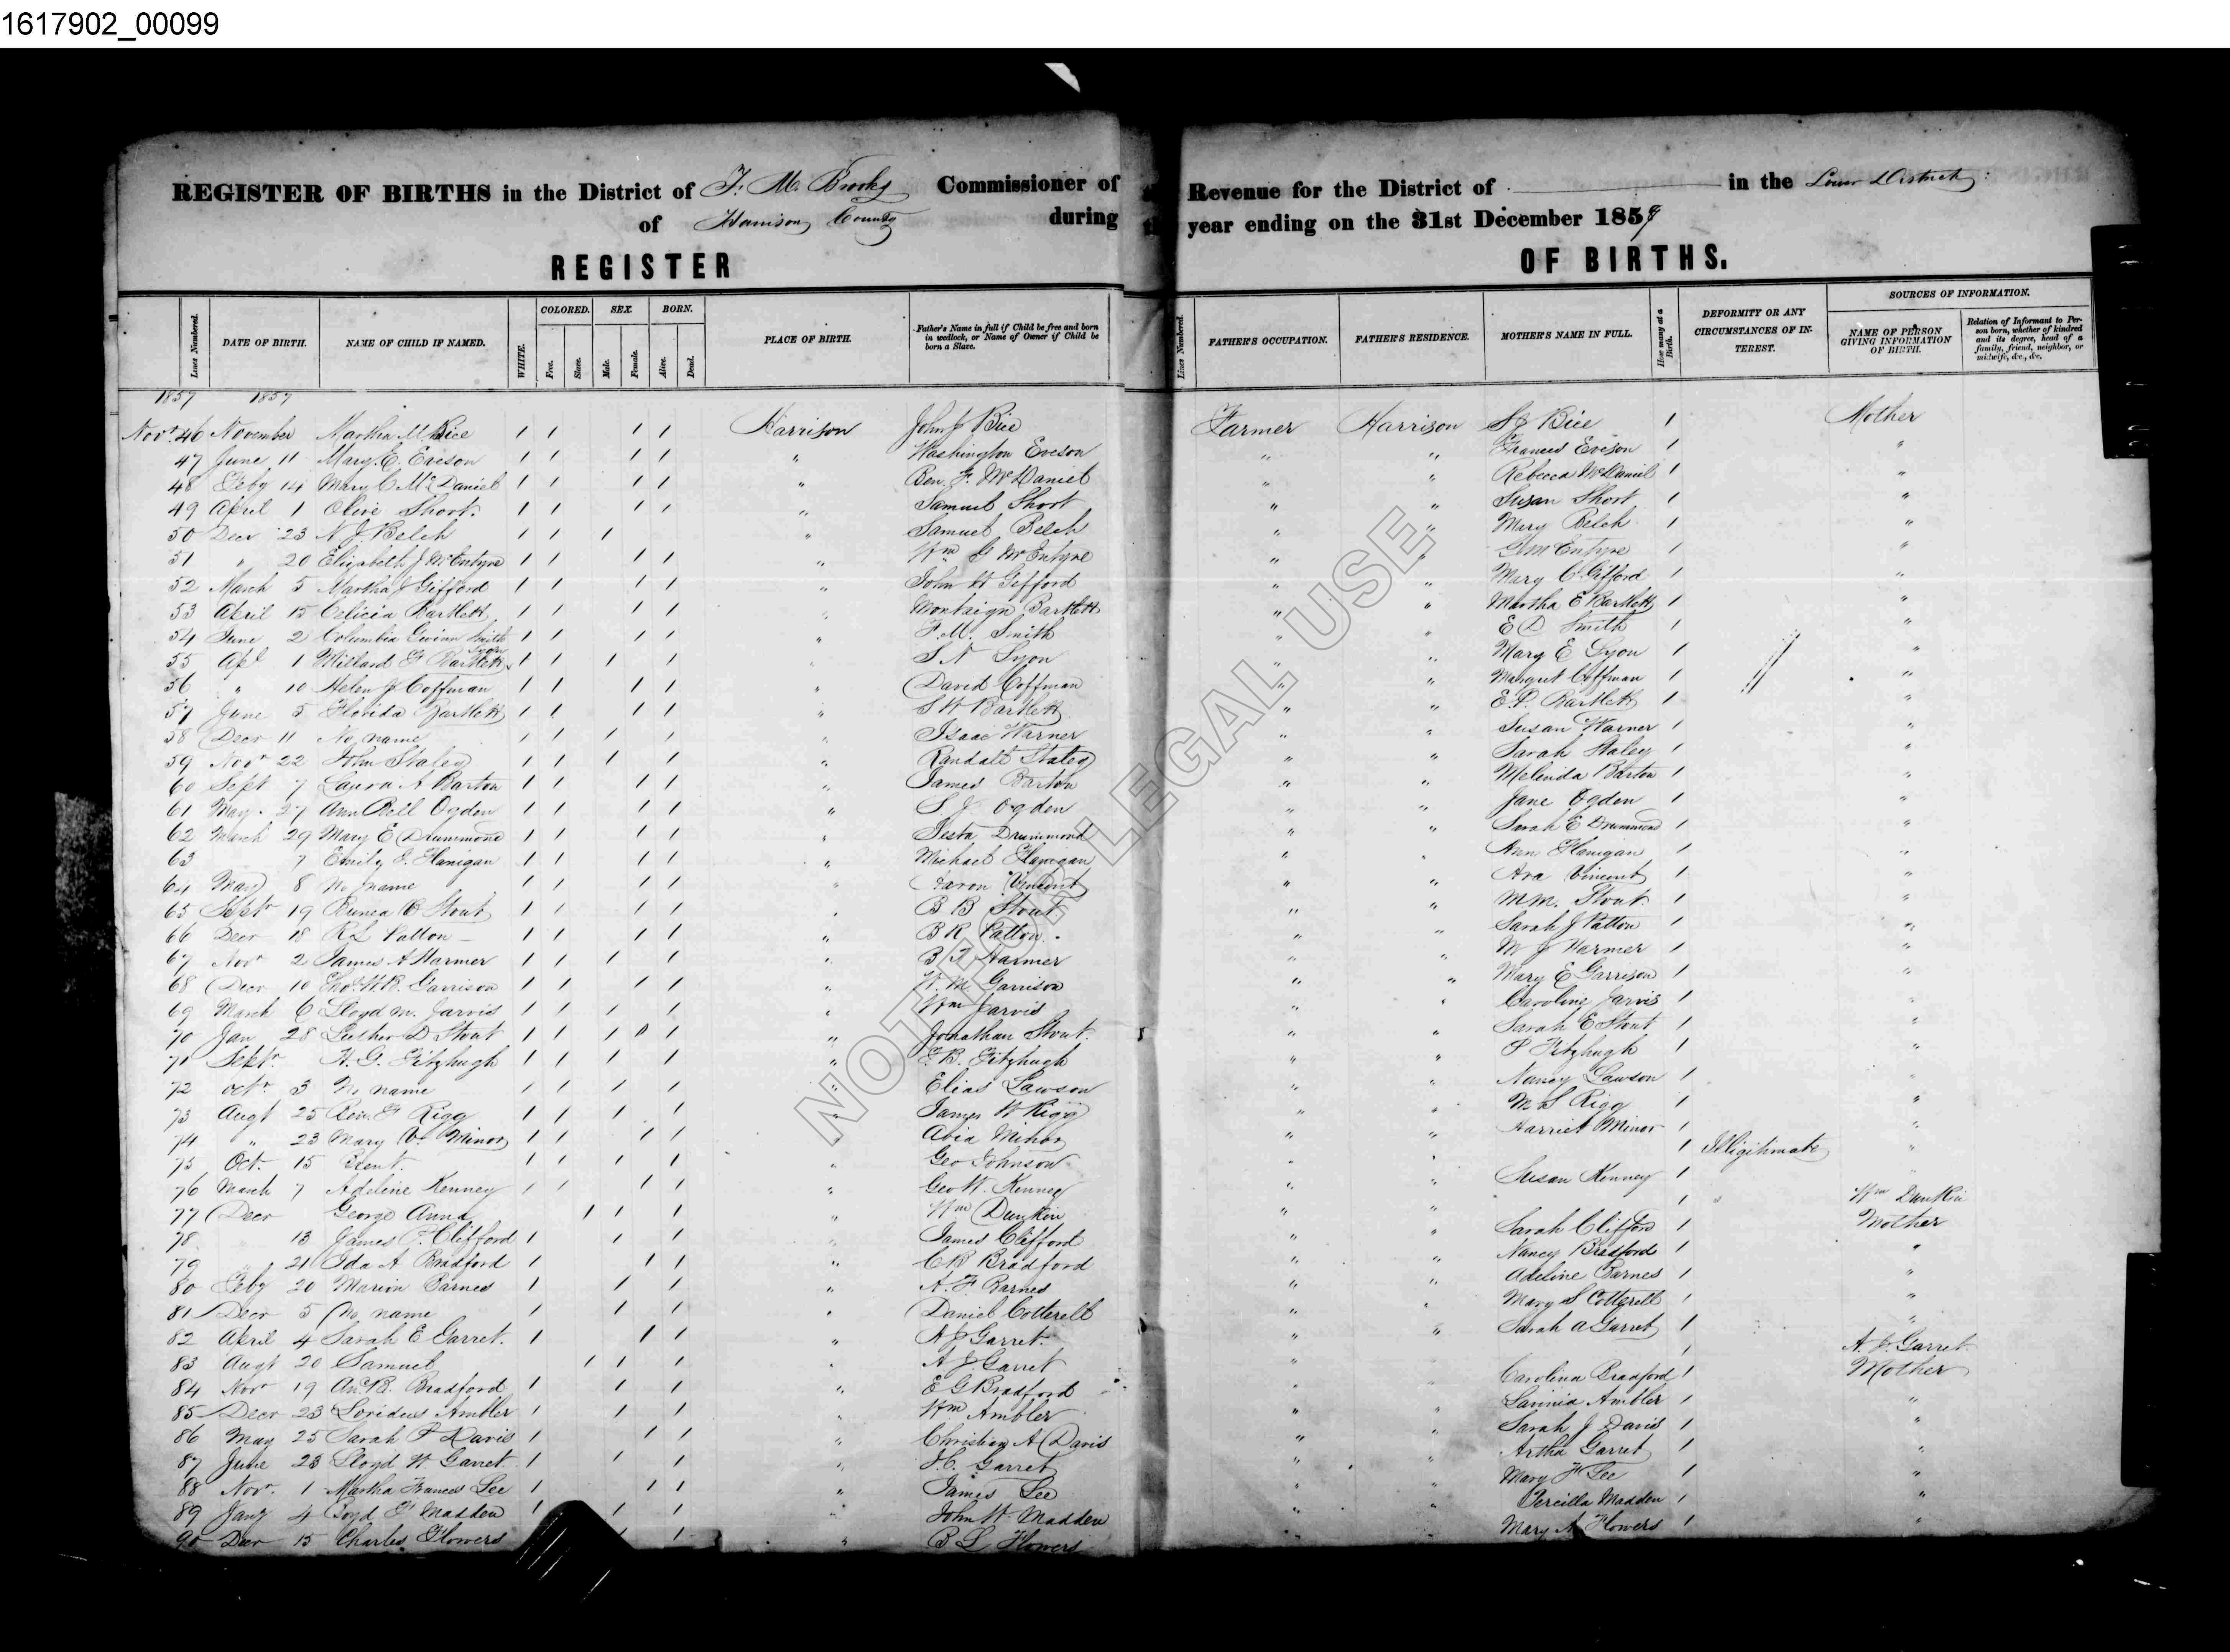 1617902_00099
REGISTER OF BIRTHS in the District of F. M. Brooks Commissioner of Revenue for the District of in the Lower District
of Harrison County during the year ending on the 31st December 1859
REGISTER OF BIRTHS.
Lines Numbered. DATE OF BIRTH. NAME OF CHILD IF NAMED. WHITE. COLORED. Free. Slave. SEX. Male. Female. BORN. Alive. Dead. PLACE OF BIRTH. Father's Name in full if Child be free and born in wedlock, or Name of Owner if Child be born a Slave. Lines Numbered. FATHER'S OCCUPATION. FATHER'S RESIDENCE. MOTHER'S NAME IN FULL. How many at a Birth. DEFORMITY OR ANY CIRCUMSTANCES OF INTEREST. SOURCES OF INFORMATION. NAME OF PERSON GIVING INFORMATION OF BIRTH. Relation of Informant to Person born, whether of kindred and its degree, head of a family, friend, neighbor, or midwife, &c., &c.
1857 1857
Novr 46 November Martha M Bice 1 1 1 1 Harrison John J Bice Farmer Harrison S J Bice 1 Mother
47 June 11 Mary E. Eveson 1 1 1 1 " Washington Eveson " " Frances Eveson 1 "
48 Feby 14 Mary C McDaniel 1 1 1 1 " Ben. F. McDaniel " " Rebecca McDaniel 1 "
49 April 1 Olive Short. 1 1 1 1 " Samuel Short " " Susan Short 1 "
50 Decr 23 N J. Belch 1 1 1 " Samuel Belch " " Mary Belch 1 "
51 " 20 Elizabeth J McEntyre 1 1 1 1 " Wm G McEntyre " " G McEntyre 1 "
52 March 5 Martha J Gifford 1 1 1 1 " John W Gifford " " Mary C Gifford 1 "
53 April 15 Celicia Bartlett 1 1 1 1 " Montaign Bartlett " " Martha E Bartlett 1 "
54 June 2 Columbia Gwinn Smith 1 1 1 1 " F. M. Smith " " E D Smith 1 "
55 Apl 1 Millard F Bartlett Lyon 1 1 1 1 " S N Lyon " " Mary E Lyon 1 "
56 " 10 Helen J Coffman 1 1 1 1 " David Coffman " " Margret Coffman 1 "
57 June 5 Florida Bartlett 1 1 1 1 " S W Bartlett " " E. P. Bartlett 1 "
58 Decr 11 No name 1 1 1 1 " Isaac Warner " " Susan Warner 1 "
59 Novr 22 John Staley 1 1 1 1 " Randall Staley " " Sarah Staley 1 "
60 Sept 7 Laura A Barton 1 1 1 1 " James Barton " " Melinda Barton 1 "
61 May 27 Ann Bell Ogden 1 1 1 1 " S J Ogden " " Jane Ogden 1 "
62 March 29 Mary E Drummond 1 1 1 1 " Drummond " " Sarah E Drummond 1 "
63 7 Emily J. Flanigan 1 1 1 1 " Michael Flanigan " " Ann Flanigan 1 "
64 May 8 No name 1 1 1 1 " Aaron Vincent " " Ara Vincent 1 "
65 Septr 19 Stout 1 1 1 1 " B B Stout " " M M. Stout 1 "
66 Decr 18 R L Patton 1 1 1 1 " B R Patton " " Sarah J Patton 1 "
67 Novr 2 James A Harmer 1 1 1 1 " B F Harmer " " M J Harmer 1 "
68 Decr 10 Thos. W. B. Garrison 1 1 1 1 " W. M. Garrison " " Mary E Garrison 1 "
69 March 6 Lloyd M. Jarvis 1 1 1 1 " Wm Jarvis " " Caroline Jarvis 1 "
70 Jan 28 Luther D Stout 1 1 1 1 " Jonathan Stout " " Sarah E Stout 1 "
71 Septr. H. G. Fitzhugh 1 1 1 1 " E. B. Fitzhugh " " P Fitzhugh 1 "
72 Octr 3 No name 1 1 1 1 " Elias Lawson " " Nancy Lawson 1 "
73 Augt 25 Ben. F Rigg 1 1 1 1 " James W Rigg " " M S Rigg 1 "
74 " 23 Mary V. Minor 1 1 1 1 " Abia Minor " " Harriet Minor 1 "
75 Oct. 15 Brent. 1 1 1 1 " Geo Johnson " " 1 Illigitimate "
76 March 7 Adeline Kenney 1 1 1 1 " Geo W. Kenney " " Susan Kenney 1 "
77 Decr George Anna 1 1 1 " Wm Dunkin " " 1 " Wm Dunkin
78 " 13 James P. Clifford 1 1 1 " James Clifford " " Sarah Clifford 1 Mother
79 " 21 Ida A Bradford 1 1 1 " C B Bradford " " Nancy Bradford 1 "
80 Feby 20 Marion Barnes 1 1 1 " A. F Barnes " " Adeline Barnes 1 "
81 Decr 5 No name 1 1 1 " Daniel Cotterell " " Mary S Cotterell 1 "
82 April 4 Sarah E Garret. 1 1 1 " A J Garret. " " Sarah A Garret 1 "
83 Augt 20 Samuel 1 1 1 " A J. Garret " 1 A. J. Garret
84 Novr 19 B. Bradford 1 1 1 " E G Bradford " " Carolina Bradford 1 Mother
85 Decr 23 Ambler 1 1 1 " Wm Ambler " " Lavinia Ambler 1 "
86 May 25 Sarah P Davis 1 1 1 " Christian A Davis " " Sarah J Davis 1 "
87 June 23 Lloyd W Garret 1 1 1 " J. C. Garret " " Artha Garret 1 "
88 Novr. 1 Martha Frances Lee 1 1 1 " James Lee " " Mary F Lee 1 "
89 Jany 4 Boyd F Madden 1 1 1 " John W Madden " " Percilla Madden 1 "
90 Decr 15 Charles Flowers 1 1 " B L Flowers " " Mary A Flowers 1 "
NOT FOR LEGAL USE